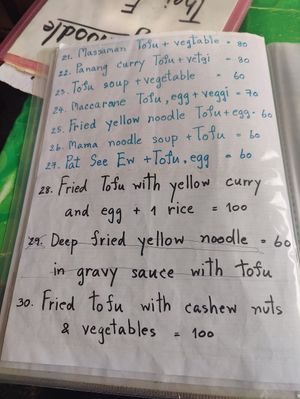 Noodle
21. Massaman Tofu + vegtable = 80
22. Panang curry Tofu + vetgi = 80
23. Tofu soup + vegetable = 60
24. Maccarone Tofu, egg + veggi = 70
25. Fried yellow noodle Tofu + egg = 60
26. Mama noodle soup + Tofu = 60
27. Pat See Ew + Tofu, egg = 60
28. Fried Tofu with yellow curry
and egg + 1 rice = 100
29. Deep fried yellow noodle = 60
in gravy sauce with tofu
30. Fried tofu with cashew nuts
& vegetables = 100